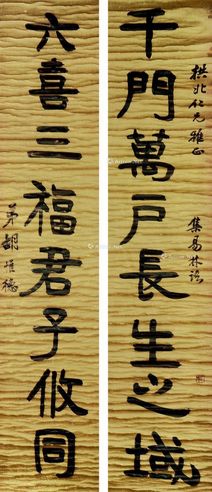 拱北仁兄雅正
千門萬戶長生之域
集易林語
六喜三福君子攸同
弟胡惟德